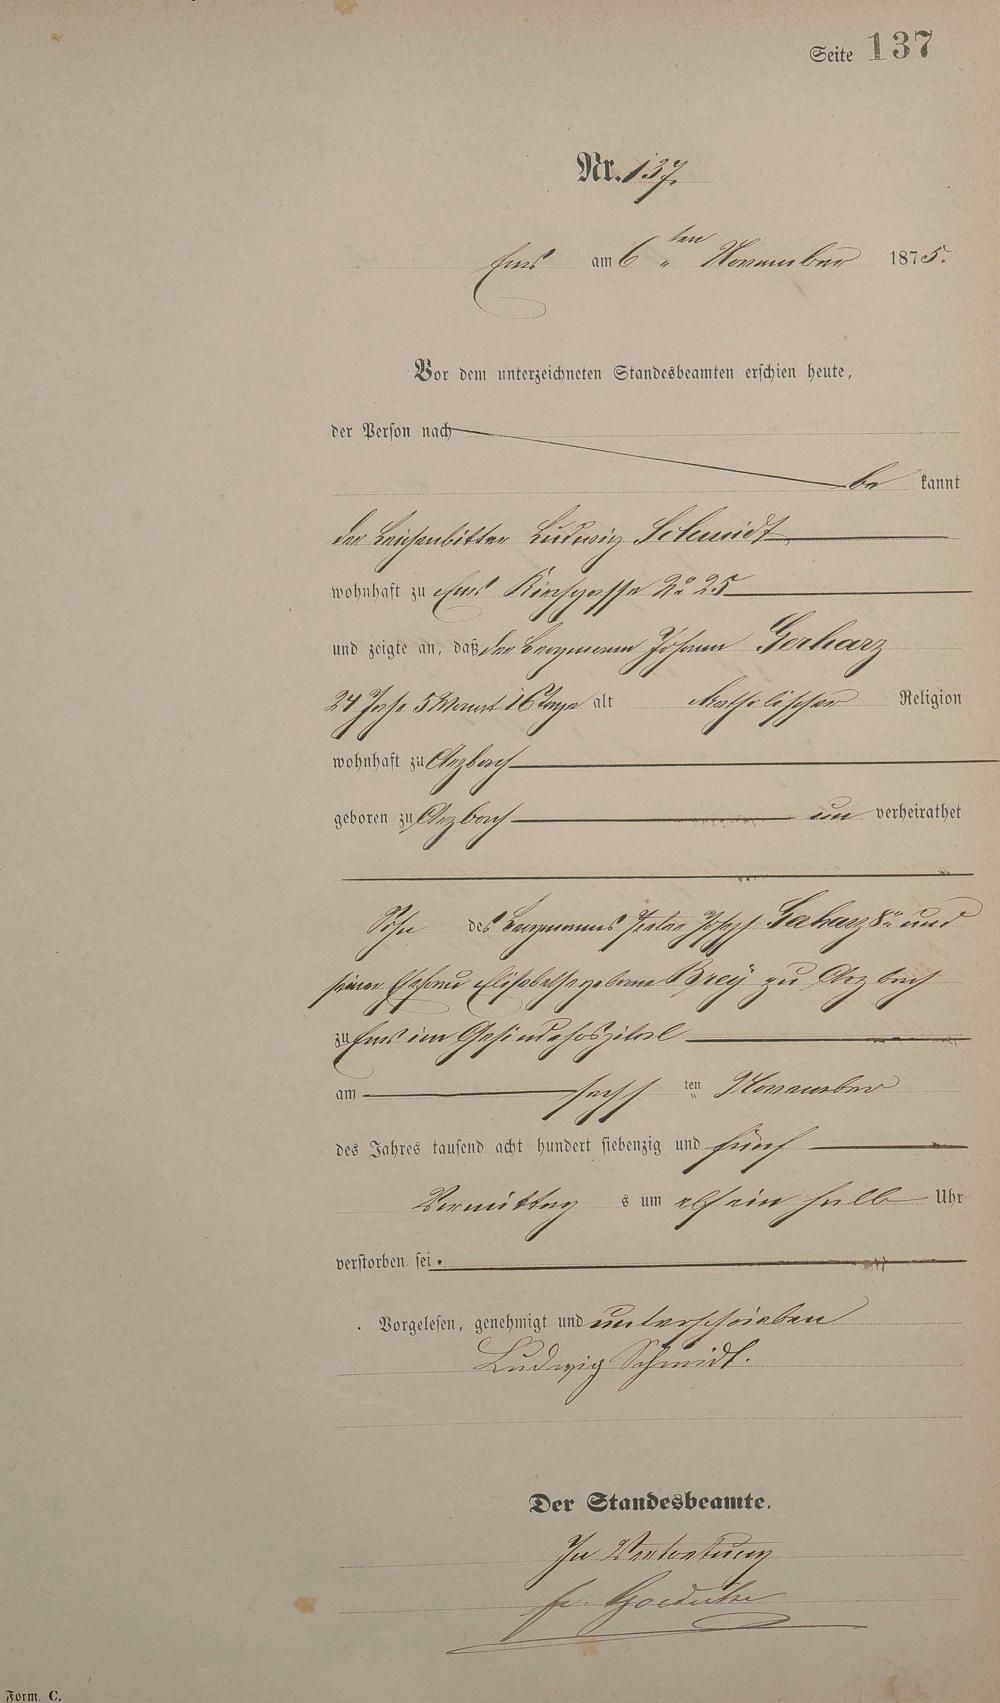 Seite 137
Nr. 137.
Ems am 6ten November 1875.
Vor dem unterzeichneten Standesbeamten erschien heute,
der Person nach
be kannt
der Leichenbitter Ludwig Schmidt
wohnhaft zu Ems Kirchgasse No 25
und zeigte an, daß der Bergmann Johann Gerharz
24 Jahr 5 Monat 16 Tage alt katholischer Religion
wohnhaft zu Arzbach
geboren zu Arzbach un verheirathet
Sohn des Bergmanns Peter Joseph Gerharz und
seiner Ehefrau Elisabeth geborene Breÿ zu Arzbach
zu Ems im Gesindehospital
am sechsten November
des Jahres tausend acht hundert siebenzig und fünf
Vormittag s um elf ein halb Uhr
verstorben sei.
Vorgelesen, genehmigt und unterschrieben
Ludwig Schmidt.
Der Standesbeamte.
In Vertretung
Form. C.